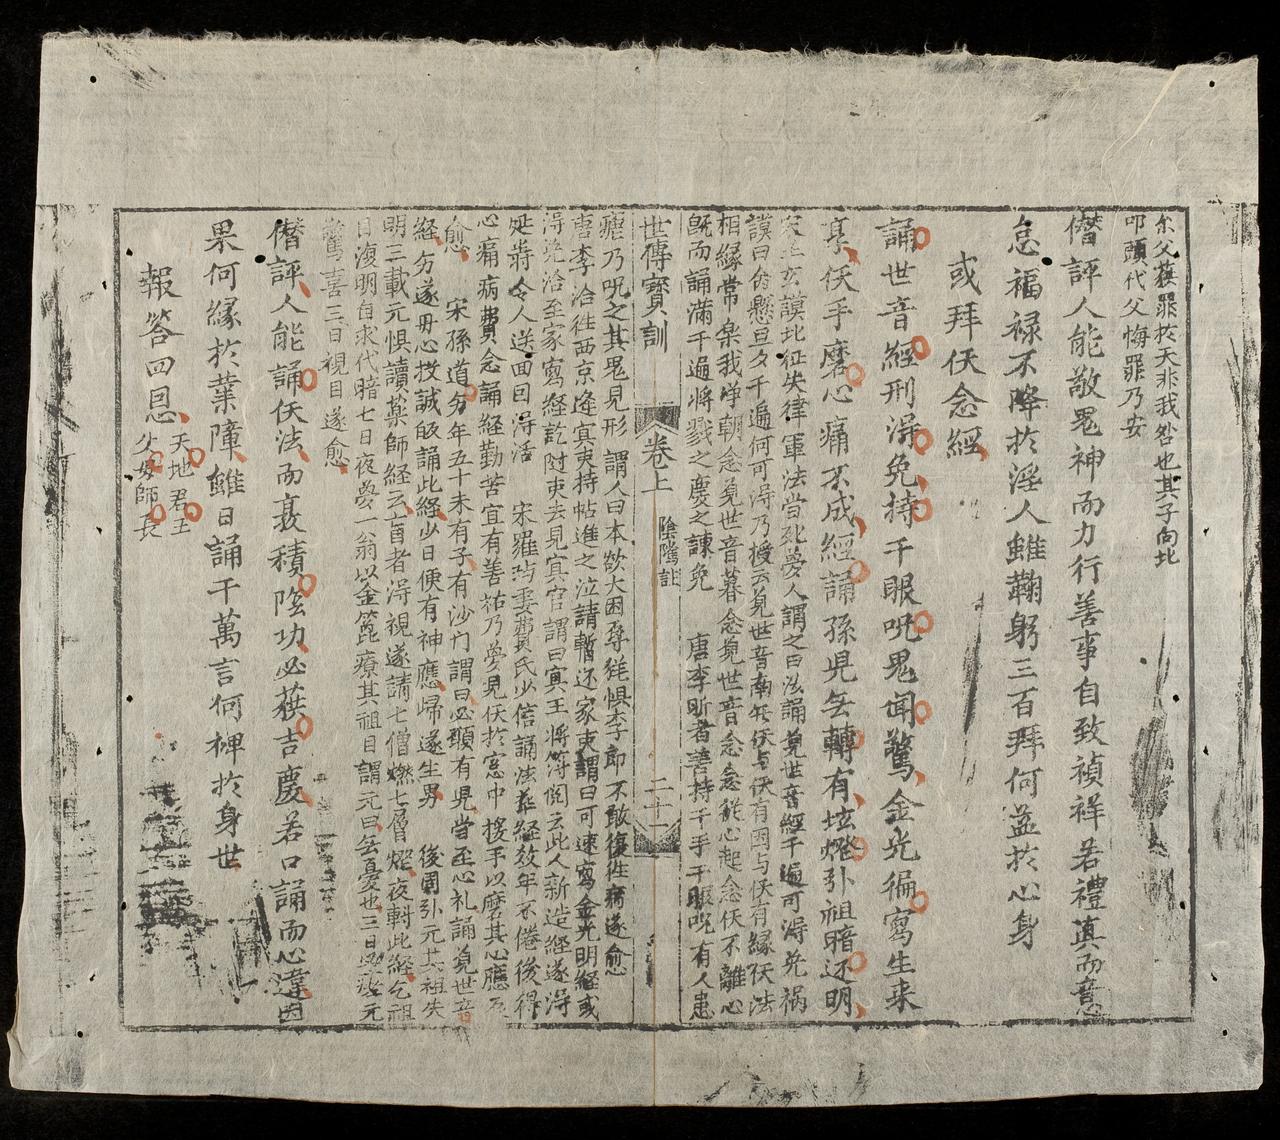 尓父𫉬罪於天非我咎也其子向北
叩頭代父悔罪乃安
僭評人能敬鬼神而力行善事自致禎祥若禮真而意
怠福禄不降於淫人雖鞠躬三百拜何益於心身
或拜伏念經
誦世音經刑得免持千眼呪鬼聞驚金光徧寫生来
享伏手磨心痛不成經誦孫児無轉有坛燈引祖暗还明
宋王玄謨北征失律軍法當死夢人謂之曰汝誦覌世音經千遍可得免祸
謨曰命懸旦夕千遍何可得乃授云覌世音南無伏与伏有因与伏有縁伏法
相縁常樂我净朝念覌世音暮念覌世音念念從心起念伏不離心
既而誦滿千遍將戮之慶之諫免 唐李昕者善持千手千眼呪有人患
世傳寳訓 卷上 陰隲註 二十一
瘧乃呪之其鬼見形謂人曰本欲大困辱徒惧李郎不敢復徃病遂愈
唐李洽徃西京逢㝠吏持帖進之泣請暫还家吏謂曰可速寫金光明經或
得免洽至家寫經訖附吏去見㝠官謂曰㝠王將簿閲云此人新造經遂得
延壽令人送回因得活 宋羅玙妻費氏少信誦法華經数年不倦後得
心痛病費念誦經勤苦宜有善祐乃夢見伏於窓中授手以磨其心應㸔
愈 宋孫道㔟年五十未有子有沙門謂曰必願有児當至心礼誦覌世音
經㔟遂毋心投誠皈誦此經少日便有神應帰遂生男 後周引元其祖失
明三載元惧讀藥師經云盲者得視遂請七僧燃七層燈夜斡此經乞祖
目復明自求代暗七日夜夢一翁以金篦療其祖目謂元曰無憂也三日必㾗元
驚喜三日視目遂愈
僭評人能誦伏法而聚積陰功必𫉬吉慶若口誦而心違因
果何縁於業障雖日誦千萬言何裨於身世
報答四恩 天地君王 父母師長